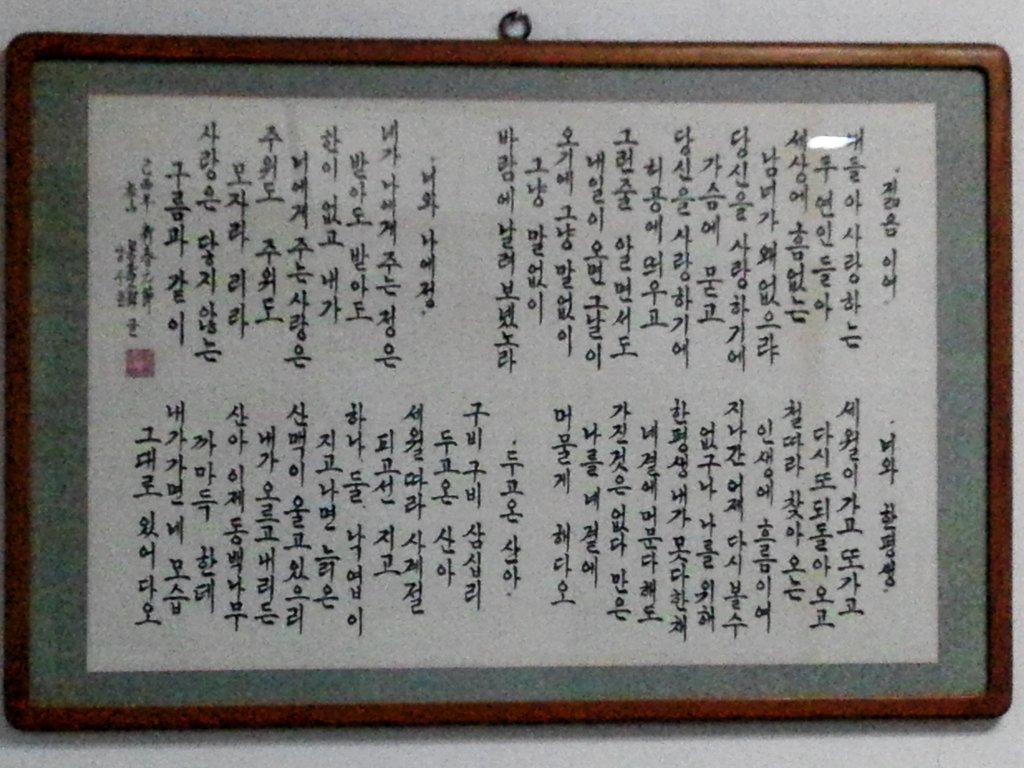 젊음이여
내들아 사랑하는
세상에 흠없는
남녀가 왜 없으랴
당신을 사랑하기에
가슴에 묻고
당신을 사랑하기에
허공에 띄우고
그런줄 알면서도
내일이 오면 그날이
오기에 그냥 말없이
그냥 말없이
바람에 날려 보냈노라
너와 나에 정
네가 나에게 주는 정은
받아도 받아도
한이 없고 내가
너에게 주는 사랑은
주워도 주워도
모자라리라
사랑은 닿지 않는
구름과 같이
너와 한평생
세월이 가고 또 가고
다시 또 되돌아 오고
철따라 찾아 오는
인생에 흐름이여
지나간 어제 다시 볼수
없구나 나를 위해
한평생 내가 못다한채
네 곁에 머문다해도
가진것은 없다만은
나를 네 곁에
머물게 해다오
두고온 산아
구비구비 삼십리
두고온 산아
세월따라 사계절
피고선 지고
하나 둘 낙엽이
지고나면 늙은
산맥이 울고 있으리
내가 오르고 내리든
산아 이제 동백나무
까마득 한데
내가 가면 네 모습
그대로 있어다오